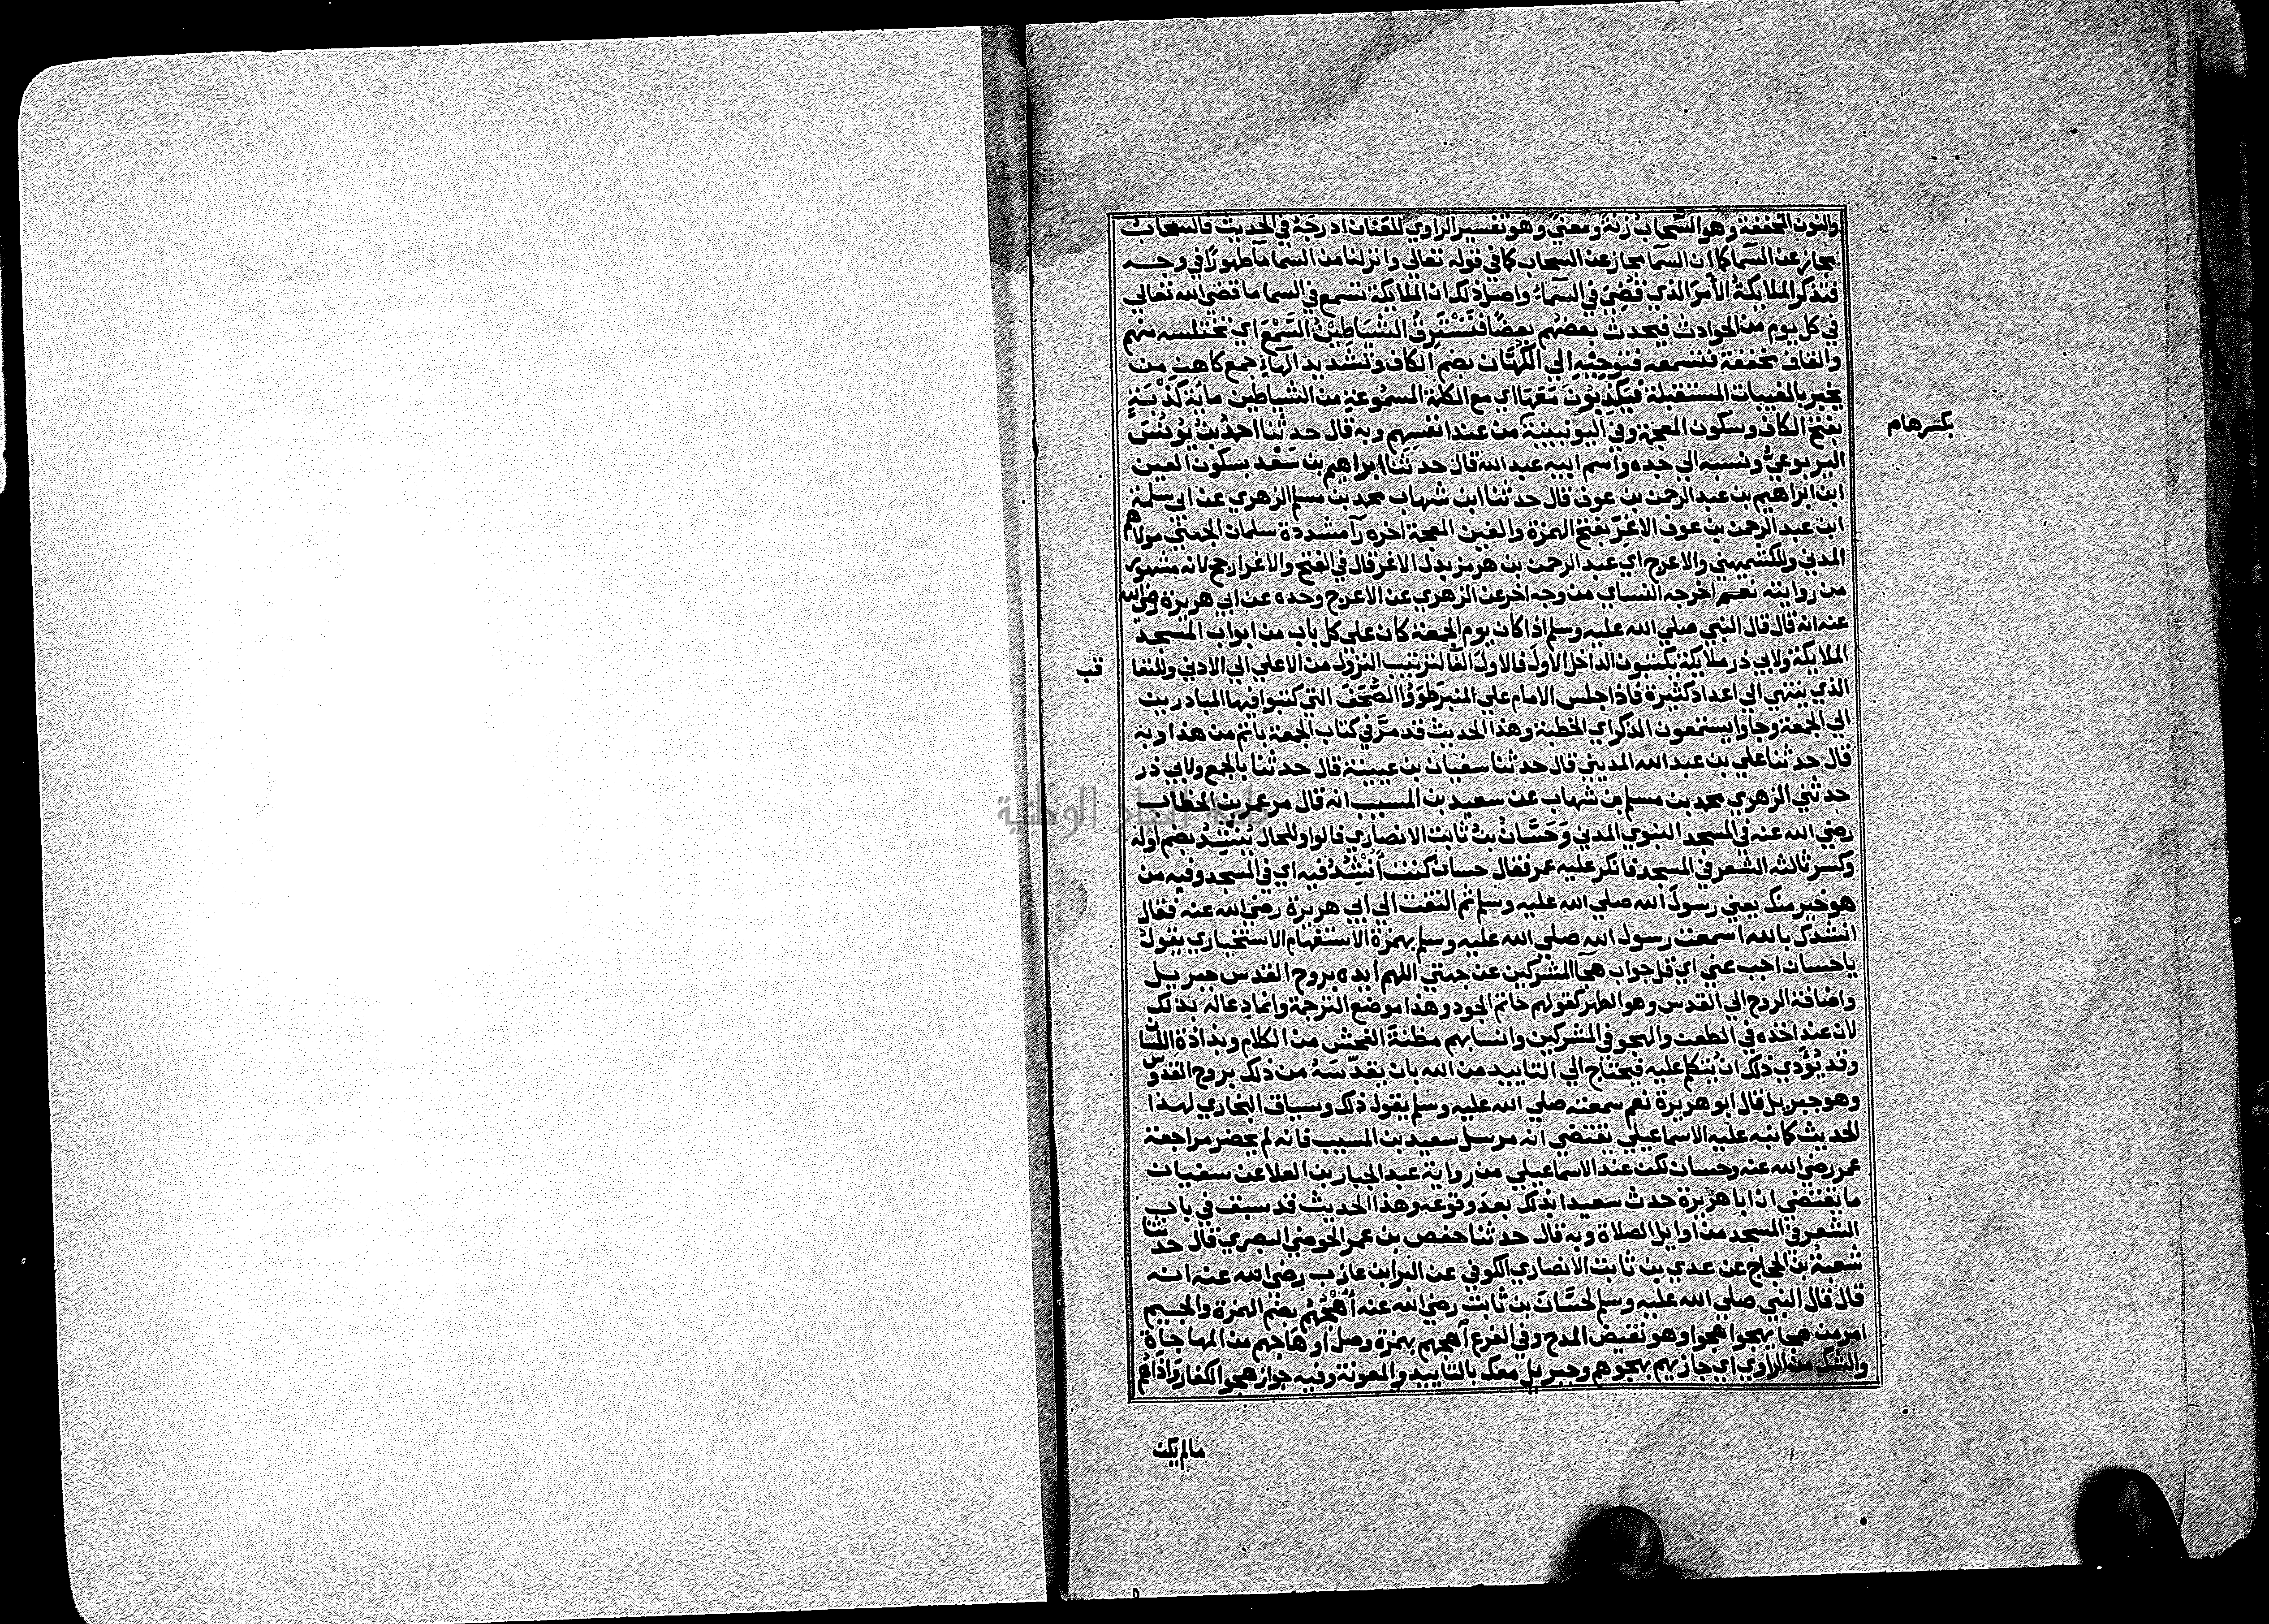 والنون المخففة وهو السَّحَابُ زنة ومعنى وهو تفسير الراوي للعَنان ادرجَهُ في الحديث فالسحاب
مجاز عن السما كما ان السما مجاز عن السحاب كما في قوله تعالي وانزلنا من السما مآ طهورًا في وجه
فتذكر الملايكةُ الأَمرَ الذي قُضِيَ في السمَاءِ واصل ذلك ان الملايكة تسمع في السما ما قضي الله تعالي
في كل يوم من الحوادث فيحدث بعضهُم بعضًا فَتَسْتَرِقُ الشيَاطِيْنُ السَّمْعَ اي تختلسه منهم
والقاف مخففة فتسمعه فتوحِيْهِ الي الكُهَّان بضم الكاف وتشديد الهآءِ جمع كاهن من
يخبر بالمغيبات المستقبلة فيَكْذِبُوْنَ مَعَهَا اي مع الكلمة المسمُوعةِ من الشياطين مايَة كَذْبَةٍ
بفتح الكاف وسكون المعجمة وفي اليونينية من عند انفسِهِم وبه قال حدثنا احمدُ بنُ يُونُسَ
اليربوعيُّ ونسبه الي جده واسم ابيه عبد الله قال حدثنا ابراهيم بن سَعْد بسكون العين
ابن ابراهيم بن عبد الرحمن بن عوف قال حدثنا ابن شهاب محمد بن مسلم الزهري عن ابي سلمة
ابن عبد الرحمن بن عوف الاغَرِّ بفتح الهمزة والغين المعجمة اخره رآ مشددة سلمان الجهني مولاهم
المدني وللكشميهني والاعرج اي عبد الرحمن بن هرمز بدل الاغر قال في الفتح والاغر ارجح لانه مشهور
من روايته نعم اخرجه النساي من وجه اخر عن الزهري عن الاعرج وحده عن ابي هريرة رضي الله
عنه انه قال قال النبي صلي الله عليه وسلم اذا كان يوم الجمعة كان علي كل باب من ابواب المسجد
الملايكة ولابي ذر ملايكة يكتبون الداخل الاولَ فالاولَ الفآ لترتيب النزول من الاعلي الي الادني وللتعا
قب
الذي ينتهي الي اعداد كثيرة فاذا جلس الامام علي المنبر طَوَوُا الصُّحَفَ التي كتبوا فيها المبادرين
الي الجمعة وجاوا يستمعون الذكر اي الخطبة وهذا الحديث قد مرَّ في كتاب الجمعة باتم من هذا وبه
قال حدثنا علي بن عبد الله المديني قال حدثنا سفيان بن عيينة قال حدثنا بالجمع ولابي ذر
حدثني الزهري محمد بن مسلم بن شهاب عن سعيد بن المسيب انه قال مر عمر بن الخطاب
رضي الله عنه في المسجد النبوي المدني وَحَسَّانُ بنُ ثابت الانصاري قالوا وللحال يُنْشِدُ بضم اوله
وكسر ثالثه الشعر في المسجد فانكر عليه عمر فقال حسان كنت أُنْشِدُ فيه اي في المسجد وفيه من
هو خير منك يعني رسولَ الله صلي الله عليه وسلم ثم التفت الي ابي هريرة رضي الله عنه فقال
انشدك بالله اسمعت رسول الله صلي الله عليه وسلم بهمزة الاستفهام الاستخباري يقول
ياحسان اجب عني اي قل جواب هجآ المشركين عن جهتي اللهم ايده بروح القدس جبريل
واضافة الروح الي القدس وهو الطهر كقولهم حاتم الجود وهذا موضع الترجمة وانما دعا له بذلك
لان عند اخذه في الطعن والهجو في المشركين وانسابهم مظنةَ الفحش من الكلام وبذاذة اللسان
وقد يُؤَدي ذلك ان يُتكلم عليه فيحتاج الي التاييد من الله بان يقدّسَهُ من ذلك بروح القدوس
وهو جبريل قال ابو هريرة نعم سمعته صلي الله عليه وسلم يقول ذلك وسياق البخاري لهذا
الحديث كما نبّه عليه الاسماعيلي يقتضي انه مرسل سعيد بن المسيب فانه لم يحضر مراجعة
عمر رضي الله عنه وحسان لكن عند الاسماعيلي من رواية عبد الجبار بن العلا عن سفيان
ما يقتضي ان ابا هريرة حدث سعيدا بذلك بعدَ وقوعه وهذا الحديث قد سبق في باب
الشعر في المسجد من اوايل الصلاة وبه قال حدثنا حفص بن عمر الحوضي البصري قال حدثنا
شعبةُ بن الحجاج عن عدي بن ثابت الانصاري الكوفي عن البرا بن عازب رضي الله عنه انه
قال قال النبي صلي الله عليه وسلم لحسَّانَ بن ثابت رضي الله عنه أُهْجُهُم بضم الهمزة والجيم
امر من هجا يهجوا هجوا وهو نقيض المدح وفي الفرع اهجهم بهمزة وصل او هَاجِهم من المهاجاة
والشك من الراوي اي جازيهم بهجوهم وجبريل معك بالتاييد والمعونة وفيه جواز هجو الكفار وَاذاهُم
مالم يكن
بكسر هام